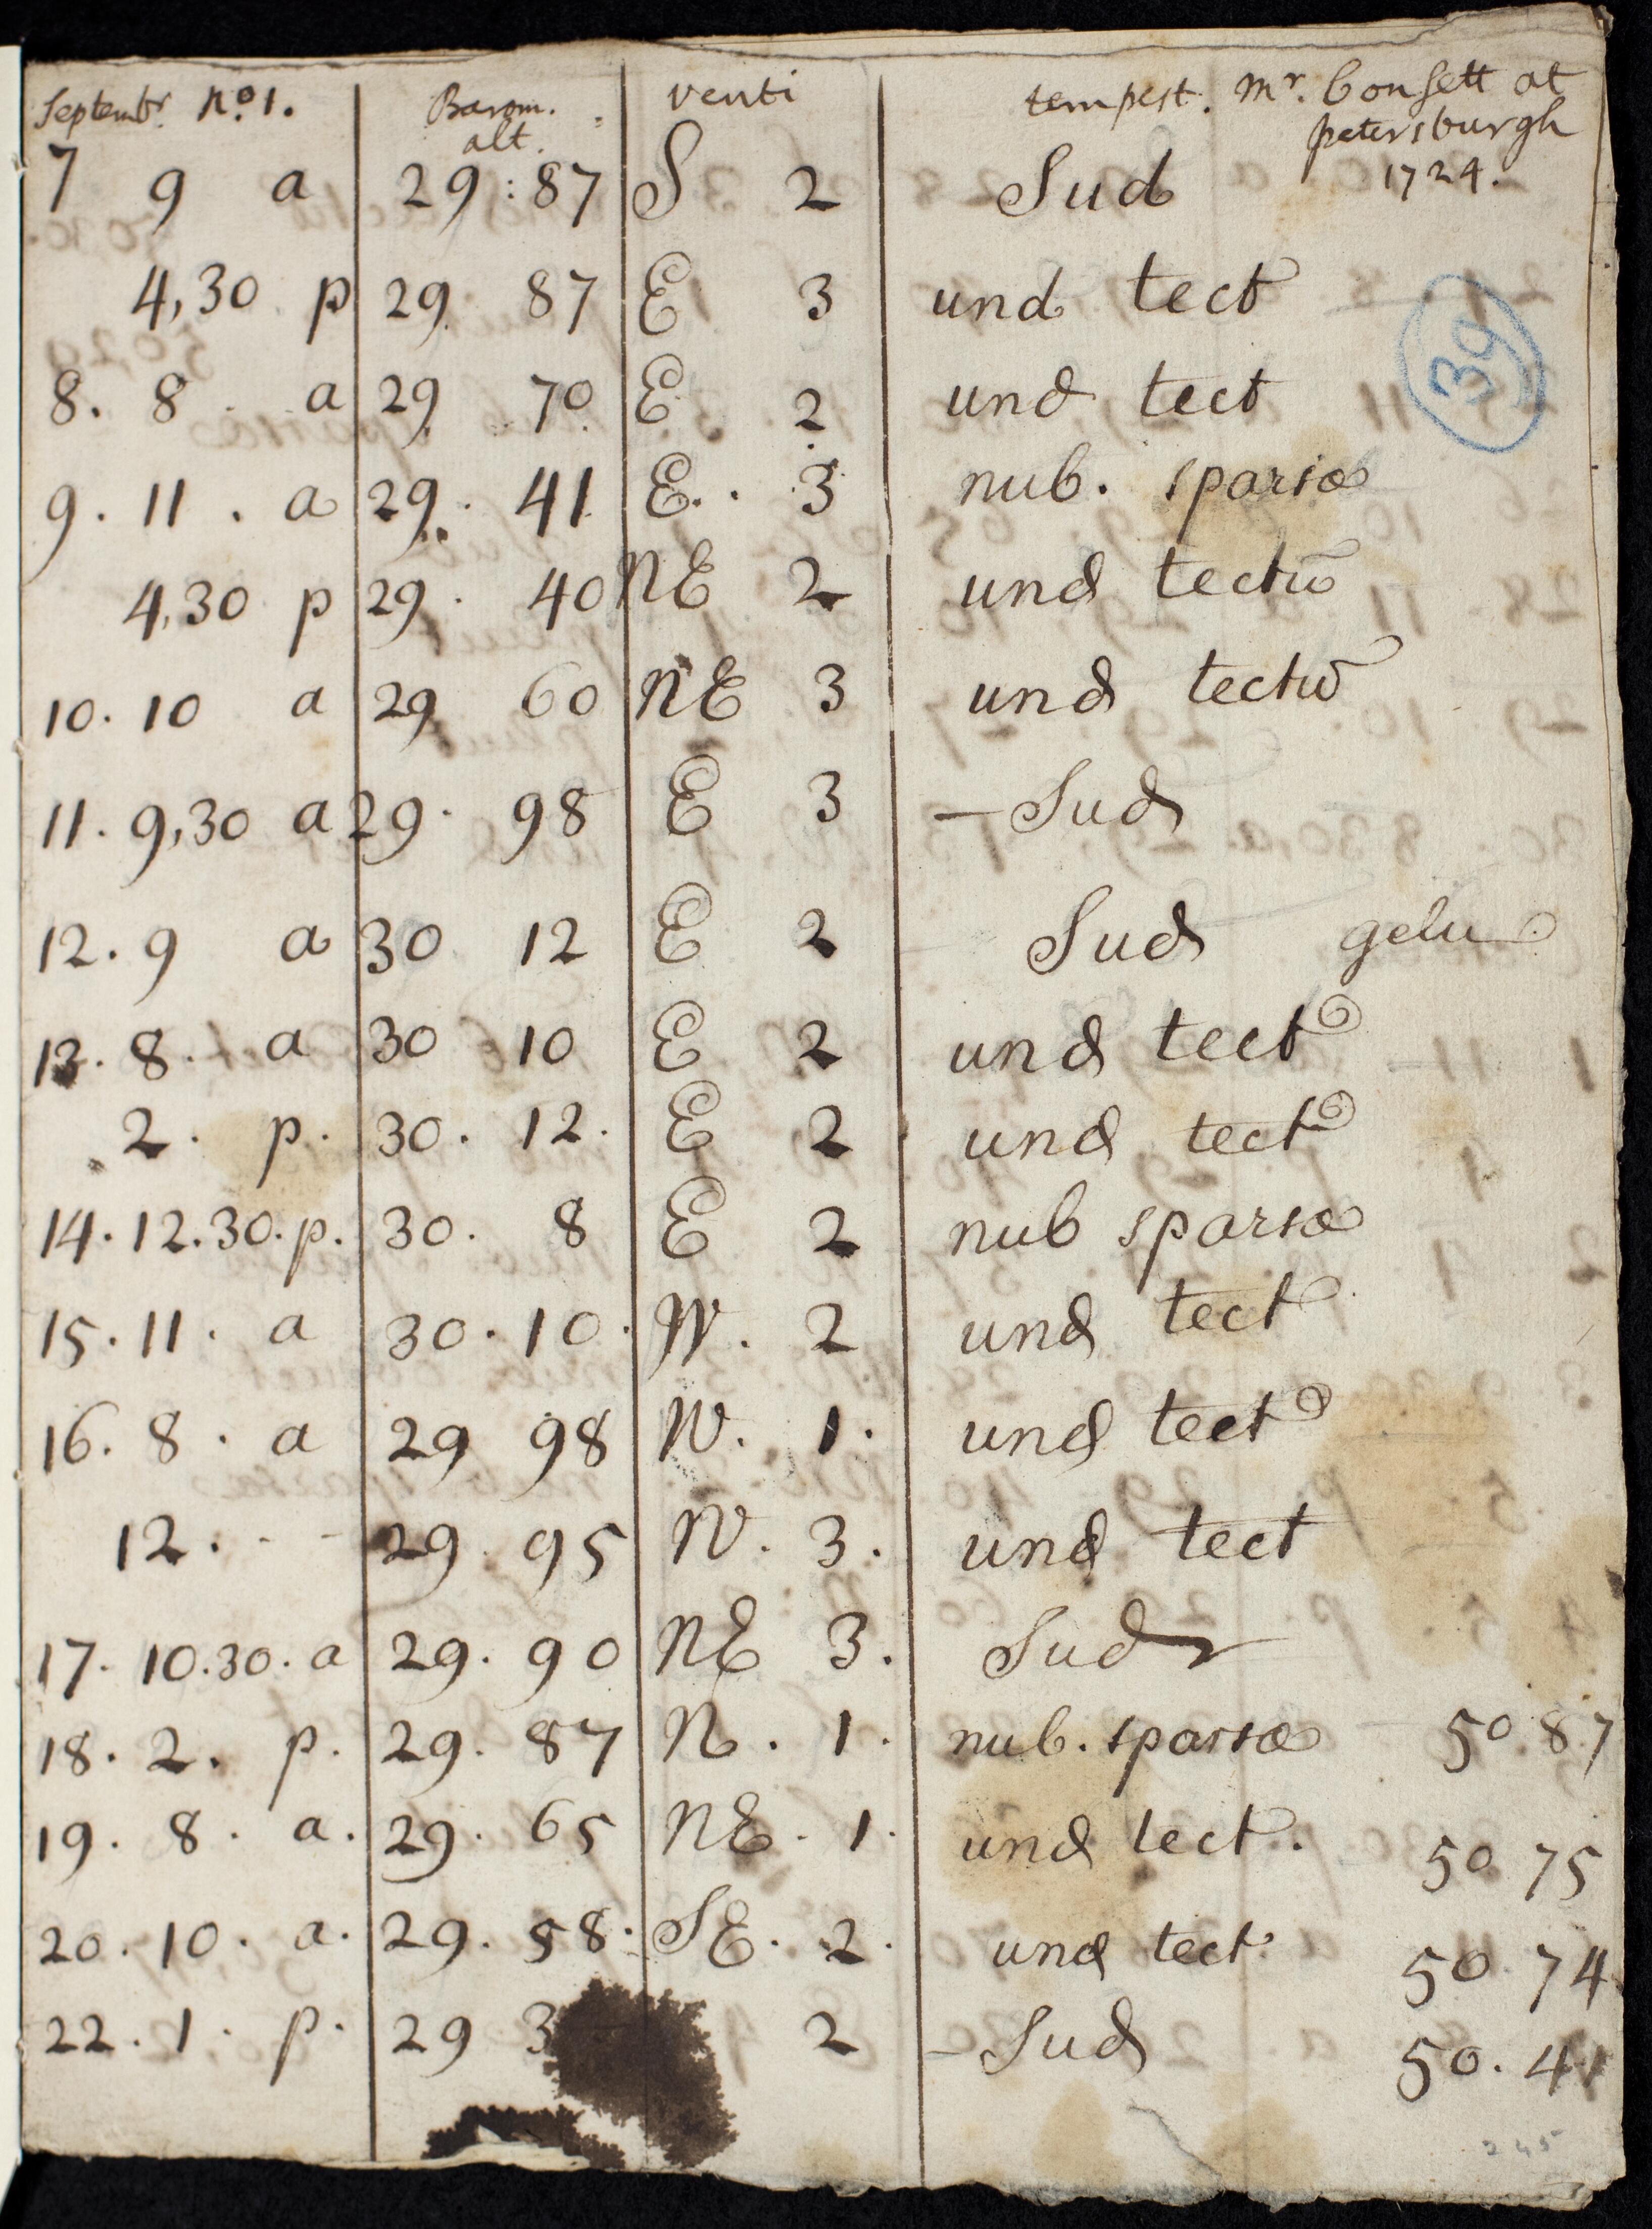 Septembr. No. 1. Barom. alt. venti tempest. Mr. Consett at
petersburgh
1724.
7 9 a 29:87 S 2 Sud
4,30 p 29 87 E 3 und tect
39
8. 8 a 29 70 E 2 und tect
9. 11. a 29. 41 E. 3 nub. sparsæ
4,30 p 29. 40 NE 2 und tectū
10. 10 a 29 60 NE 3 und tectū
11. 9,30 a 29. 98 E 3 – Sud
12. 9 a 30 12 E 2 Sud gelu
13. 8. a 30 10 E 2 und tect
2. p. 30. 12. E 2 und tect
14. 12.30. p. 30. 8 E 2 nub sparsæ
15. 11. a 30. 10. W. 2 und tect
16. 8. a 29 98 W. 1. und tect
12. - - 29. 95 W. 3. und tect
17. 10.30. a 29. 90 NE 3. Sud
18. 2. p. 29. 87 N. 1. nub. sparsæ 50.87
19. 8. a. 29. 65 NE. 1. und tect. 50 75
20. 10. a. 29. 58. SE. 2. und tect. 50. 74
22. 1. p. 29 3 2 – Sud 50. 41
245